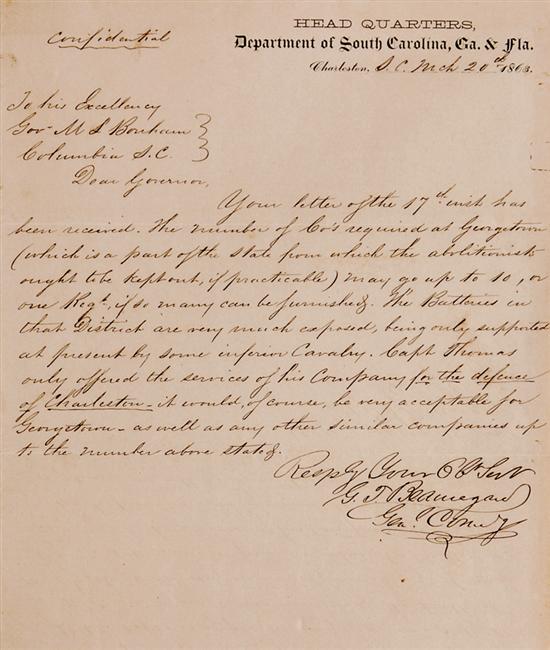 Confidential
HEAD QUARTERS,
Department of South Carolina, Ga. & Fla.
Charleston, S.C. Mch 20th 1863.
To his Excellency
Govr M L Bonham
Columbia S.C.
Dear Governor,
Your letter of the 17th inst has
been received. The number of Co's required at Georgetown
(which is a part of the State from which the abolitionists
ought to be kept out, if practicable) may go up to 10, or
one Regt, if so many can be furnished. The Batteries in
that District are very much exposed, being only supported
at present by some inferior Cavalry. Capt Thomas
only offered the services of his Company for the defence
of Charleston - it would, of course, be very acceptable for
Georgetown - as well as any other similar companies up
to the number above stated.
Resply Your Obt Servt
G. T. Beauregard
Genl Comdg